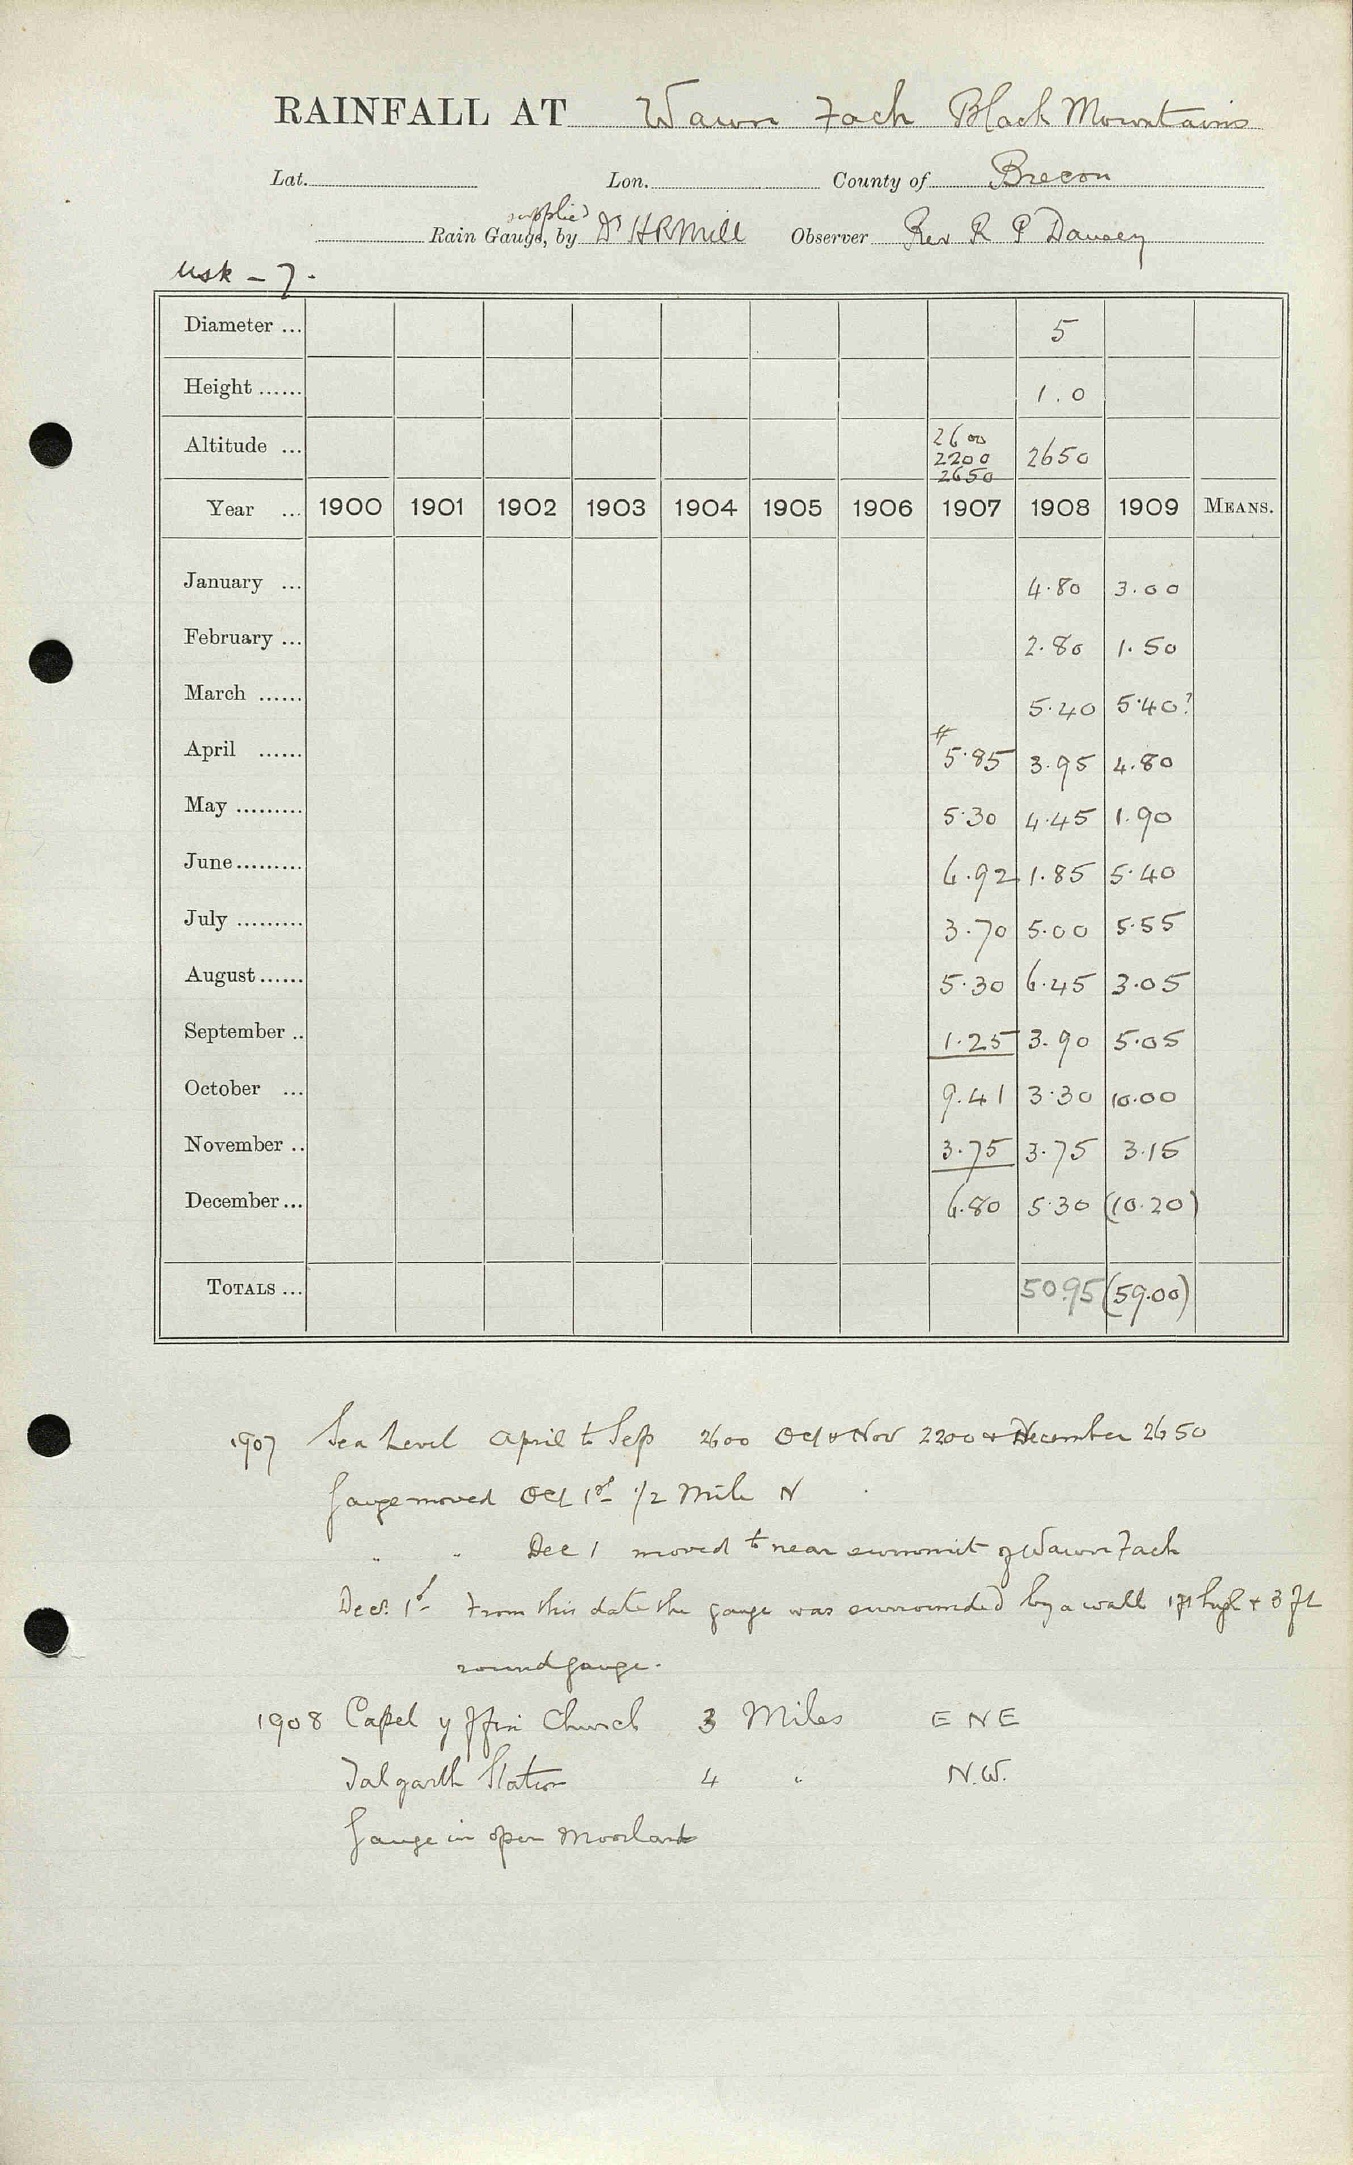 RAINFALL AT Wawn Fach Black Mountains
Lat. Lon. County of Brecon
supplied
Rain Gauge, by Dr H R Mill Observer Rev R P Dansey
Usk - 7.
Diameter ... 5
Height ...... 1.0
Altitude ... 2600 2200 2650 2650
Year ... 1900 1901 1902 1903 1904 1905 1906 1907 1908 1909 MEANS.
January ... 4.80 3.00
February ... 2.80 1.50
March ...... 5.40 5.40?
April ...... # 5.85 3.95 4.80
May ......... 5.30 4.45 1.90
June ......... 6.92 1.85 5.40
July ......... 3.70 5.00 5.55
August ...... 5.30 6.45 3.05
September .. 1.25 3.90 5.05
October ... 9.41 3.30 10.00
November .. 3.75 3.75 3.15
December ... 6.80 5.30 (10.20)
TOTALS ... 50.95 (59.00)
1907 Sea Level April to Sep 2600 Oct & Nov 2200 & December 2650
Gauge moved Oct 1st 1/2 Mile N
" " Dec 1 moved to near summit of Wawn Fach
Decr. 1st From this date the gauge was surrounded by a wall 1ft high & 3 ft
round gauge.
1908 Capel y ffin Church 3 Miles E N E
Talgarth Station 4 " N.W.
Gauge in open Moorland